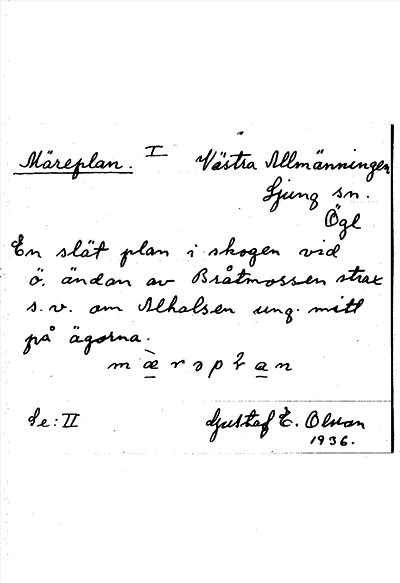 Märeplan. I Västra Allmänningen
Ljung sn.
Ögl
En slät plan i skogen vid
ö. ändan av Bråtmossen strax
s.v. om Alhalsen ung. mitt
på ägorna.
m æ̀ r ə p ł a n
Se: II Gustaf E. Olsson
1936.